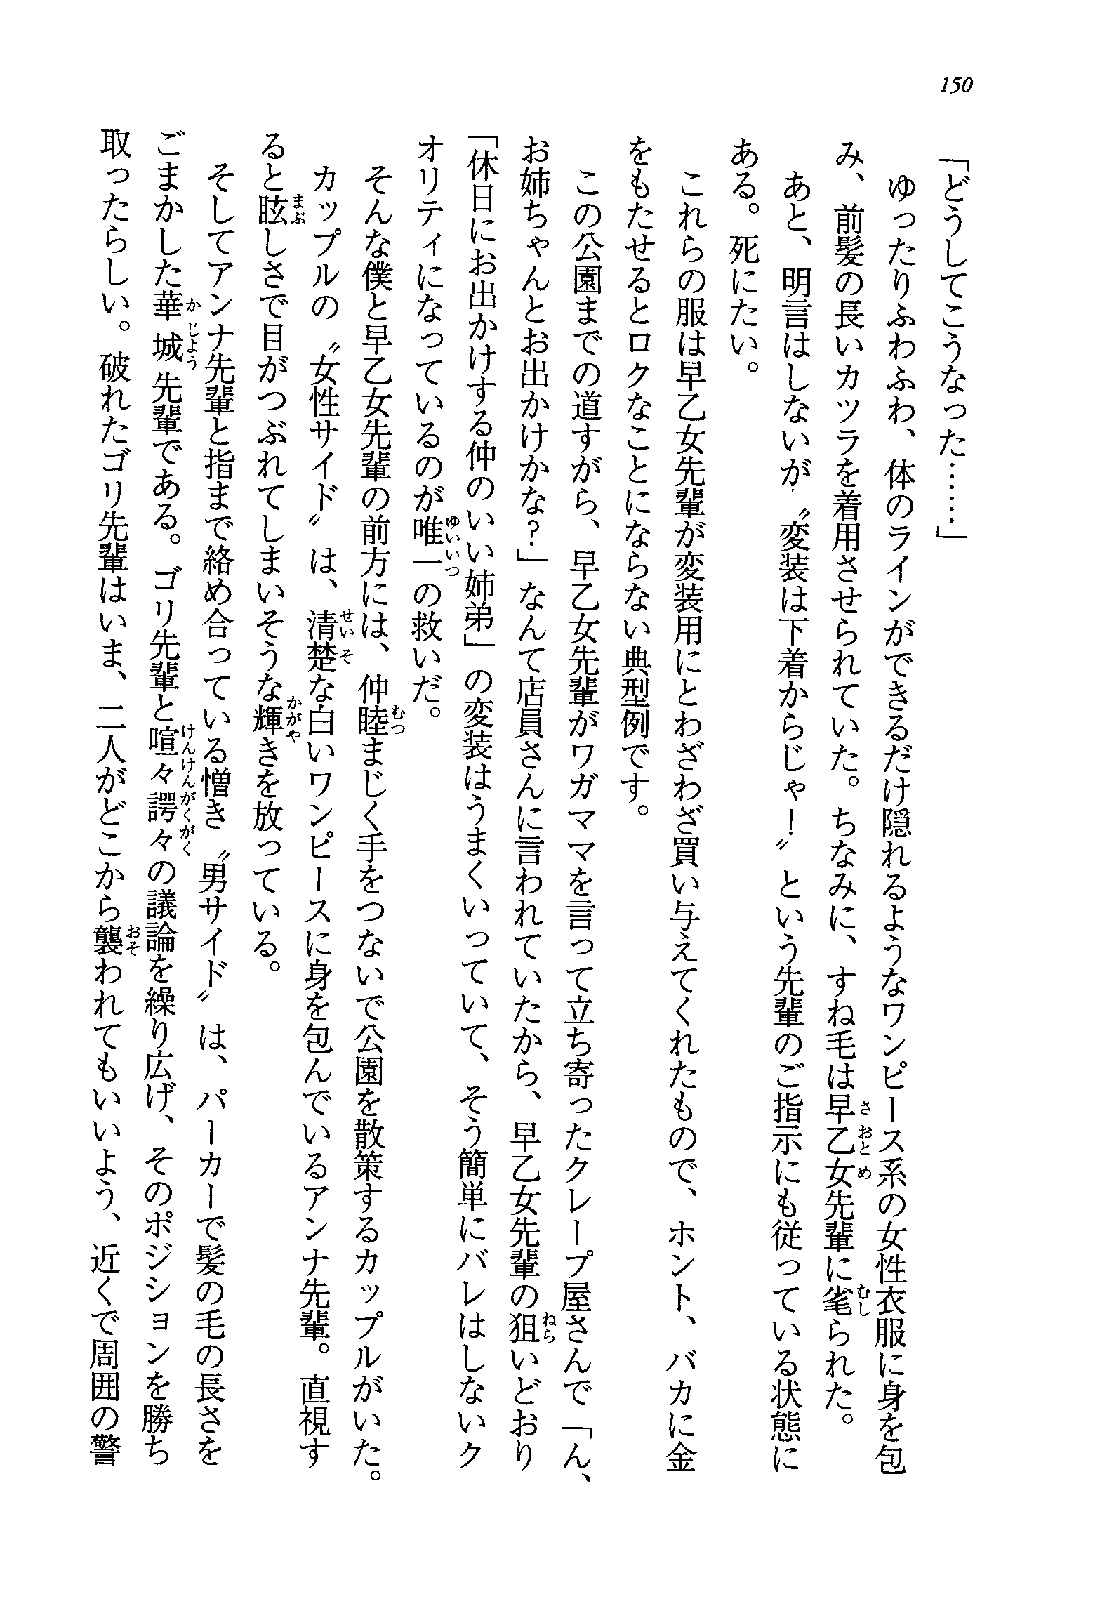 150
「どうしてこうなった……」
ゆったりふわふわ、体のラインができるだけ隠れるようなワンピース系の女性衣服に身を包
み、前髪の長いカツラを着用させられていた。ちなみに、すね毛は早乙女先輩に毟られた。
あと、明言はしないが〝変装は下着からじゃ！〟という先輩のご指示にも従っている状態に
ある。死にたい。
これらの服は早乙女先輩が変装用にとわざわざ買い与えてくれたもので、ホント、バカに金
をもたせるとロクなことにならない典型例です。
この公園までの道すがら、早乙女先輩がワガママを言って立ち寄ったクレープ屋さんで「ん、
お姉ちゃんとお出かけかな？」なんて店員さんに言われていたから、早乙女先輩の狙いどおり
「休日にお出かけする仲のいい姉弟」の変装はうまくいっていて、そう簡単にバレはしないク
オリティになっているのが唯一の救いだ。
そんな僕と早乙女先輩の前方には、仲睦まじく手をつないで公園を散策するカップルがいた。
カップルの〝女性サイド〟は、清楚な白いワンピースに身を包んでいるアンナ先輩。直視す
ると眩しさで目がつぶれてしまいそうな輝きを放っている。
そしてアンナ先輩と指まで絡め合っている憎き〝男サイド〟は、パーカーで髪の毛の長さを
ごまかした華城先輩である。ゴリ先輩と喧々諤々の議論を繰り広げ、そのポジションを勝ち
取ったらしい。破れたゴリ先輩はいま、二人がどこから襲われてもいいよう、近くで周囲の警